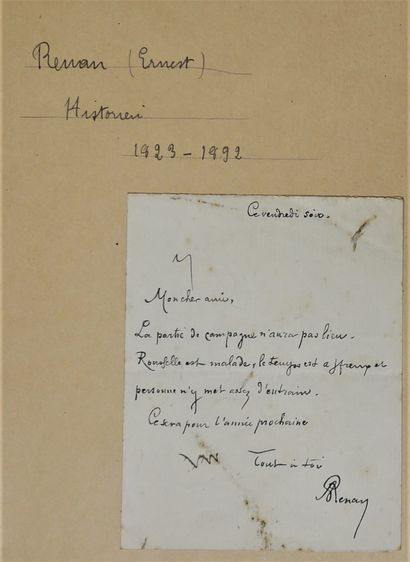 Renan (Ernest)
Historien
1823 - 1892
Ce vendredi soir.
Mon cher ami,
La partie de campagne n'aura pas lieu.
Rousselle est malade, le temps est affreux et
personne n'y met assez d'entrain.
Ce sera pour l'année prochaine
Tout à toi
Renan